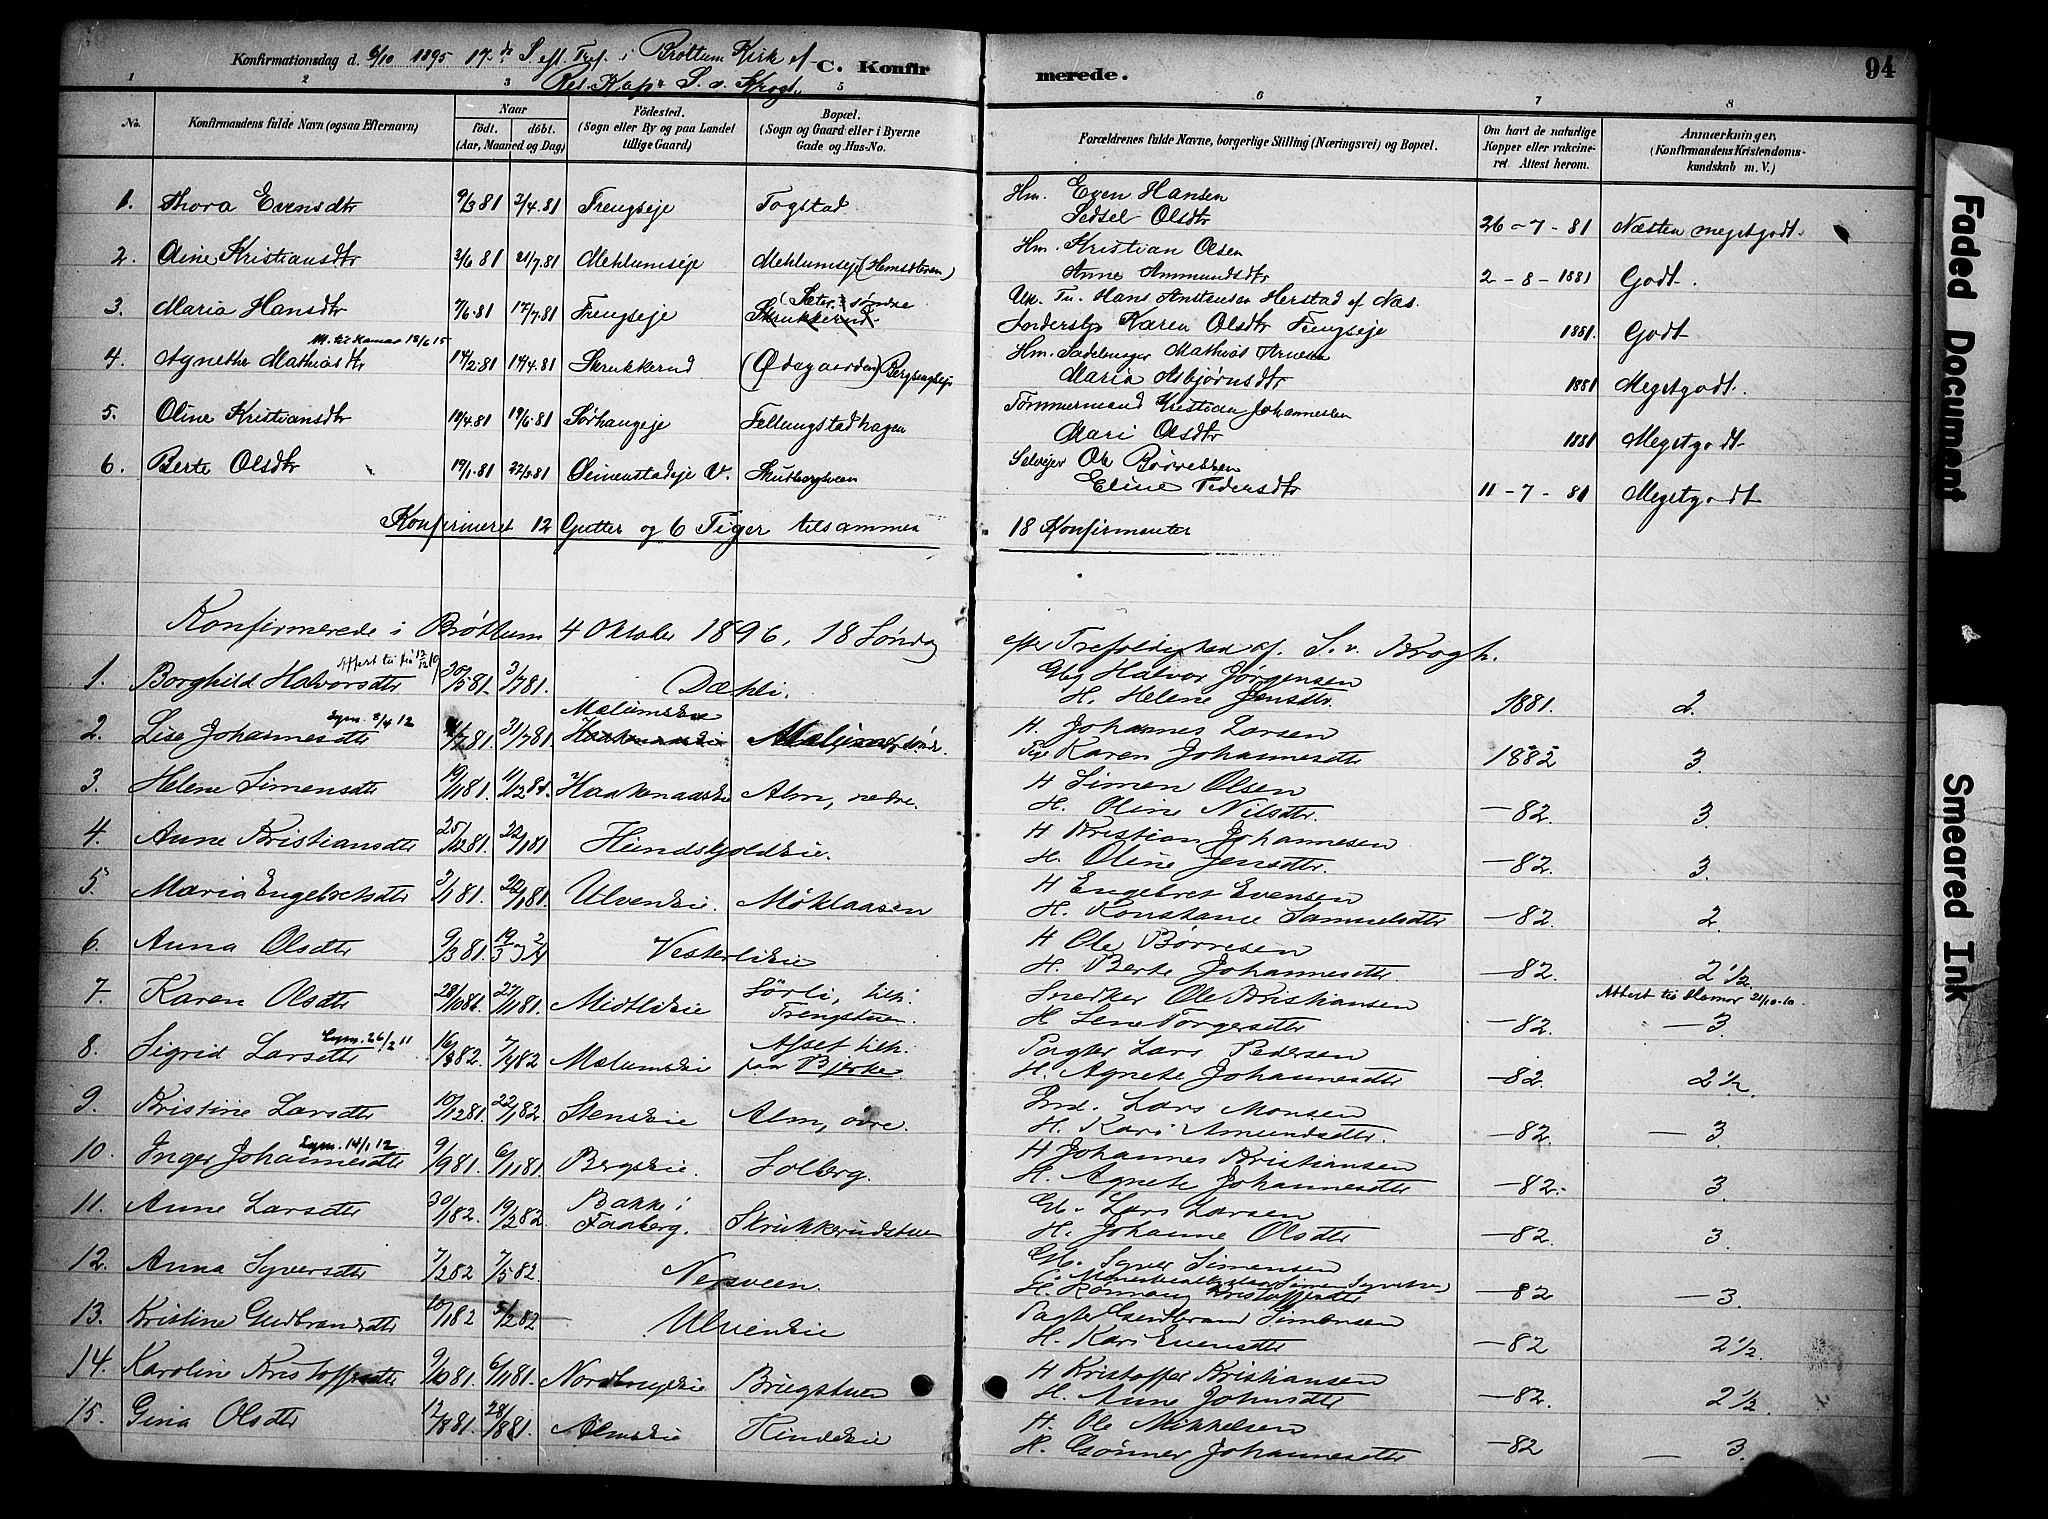 Konfirmationsdag d. 6/10 1895 17de S. eft. Tref. i Brøttum Kirk af C. Konfirmerede. 94
Res. Kap. S. v. Krogh
1 2 3 5 6 7 8
No. Konfirmandens fulde Navn (ogsaa Efternavn) Naar født. døbt. (Aar, Maaned og Dag) Fødested. (Sogn eller By og paa Landet tillige Gaard) Bopæl. (Sogn og Gaard eller i Byerne Gade og Hus-No. Forældrenes fulde Navne, borgerlige Stilling (Næringsvei) og Bopæl. Om havt de naturlige Kopper eller vakcineret. Attest herom. Anmærkninger. (Konfirmandens Kristendomskundskab m. V.)
1. Thora Evensdtr 9/3 81 3/4 81 Frengseje Fogstad Hm. Even Hansen
Sidsel Olsdtr 26-7-81 Næsten megetgodt.
2. Oline Kristiansdtr 2/6 81 21/7 81 Mehlumseje Mehlumseje Hm. Kristian Olsen
Anne Ammundsdtr 2-8-1881 Godt.
3. Maria Hansdtr 7/6 81 17/7 81 Frengseje (Sæter søndre Skrukkerud Hans Anstensen Herstad af Næs.
Karen Olsdtr Frengseje 1881. Godt
4. Agnethe Mathiasdtr 14/2 81 17/4 81 Skrukkerud (Ødegaarden) Bergsengseje Hm. Sadelmager Mathias Arnesen
Maria Asbjørnsdtr 1881 Megetgodt.
5. Oline Kristiansdtr 10/4 81 19/6 81 Sørhaugeje Fellungstadhagen Tømmermand Kristian Johannessen
Mari Olsdtr 1881 Megetgodt
6. Berte Olsdtr 19/1 81 22/5 81 Simenstadeje V. Selvejer Ole Børresen
Eline Pedersdtr 11-7-81 Megetgodt
Konfirmeret 12 Gutter og 6 Piger tilsammen 18 Konfirmanter
Konfirmerede i Brøttum 4 Oktober 1896, 18 Søndag efter Trefoldighed af S. v. Krogh.
1. Borghild Halvorsdtr 30/5 81. 3/7 81. Dæhli. Halvor Jørgensen
H. Helene Jensdtr. 1881. 2.
2. Lise Johannesdtr 31/7 81 Mælumseie Johannes Larsen
Karen Johannesdtr 1882 3.
3. Helene Simensdtr 19/11 81 Haakenaaseie Alm, nedre. H Simen Olsen
H. Oline Nilsdtr. -82. 3.
4. Anne Kristiansdtr Hindskjoldeie. H Kristian Johannesen
H. Oline Jensdtr. -82. 3.
5. Maria Engebretsdtr Ulveneie. Møklaasen H Engebret Evensen
H. Konstance Samuelsdtr -82. 2.
6. Anna Olsdtr 9/3 81. Vesterlieie H Ole Børresen
H. Berte Johannesdtr -82. 2½
7. Karen Olsdtr Midtlieie Sørli, tilh. Frengstuen. Snedker Ole Kristiansen
H Lene Torgersdtr -82. -3. Attest til Hamar 21/10-10.
8. Sigrid Larsdtr 16/3 82. 7/4 82 Mælumseie Afset tilh. paa Bjerke. Pagter Lars Pedersen
H. Agnete Johannesdtr -82. 2½.
9. Kristine Larsdtr 10/12 81. 22/1 82 Stenseie Alm, øvre. Lars Monsen
H. Kari Amundsdtr. -82. -3.
10. Inger Johannesdtr 9/9 81. 6/11 81. Bergseie Solberg. H Johannes Kristiansen
H. Agnete Johannesdtr -82. 3.
11. Anne Larsdtr 30/1 82. 19/3 82. Bakke i Faaberg. Skrukkerudstuen Lars Larsen
H. Johanne Olsdtr -82. 3.
12. Anna Syversdtr 7/2 82 7/5 82. Nersveen. Syver Simensen
H. Rønnaug Kristoffersdtr -82 -3.
13. Kristine Gudbrandsdtr 10/1 82 5/2 82 Ulveneie Pagter Gudbrand Simensen
H. Kari Evensdtr -82 2½.
14. Karoline Kristoffersdtr 9/10 81. 6/11 81. Nordhageeie Brugstuen H Kristoffer Kristiansen
H. Anne Johnsdtr -82. 2½.
15. Gina Olsdtr 12/8 81. 28/8 81. Almseie Hindeie H. Ole Mikkelsen
H. Gønner Johannesdtr -82 -3.
Faded Document
Smeared Ink